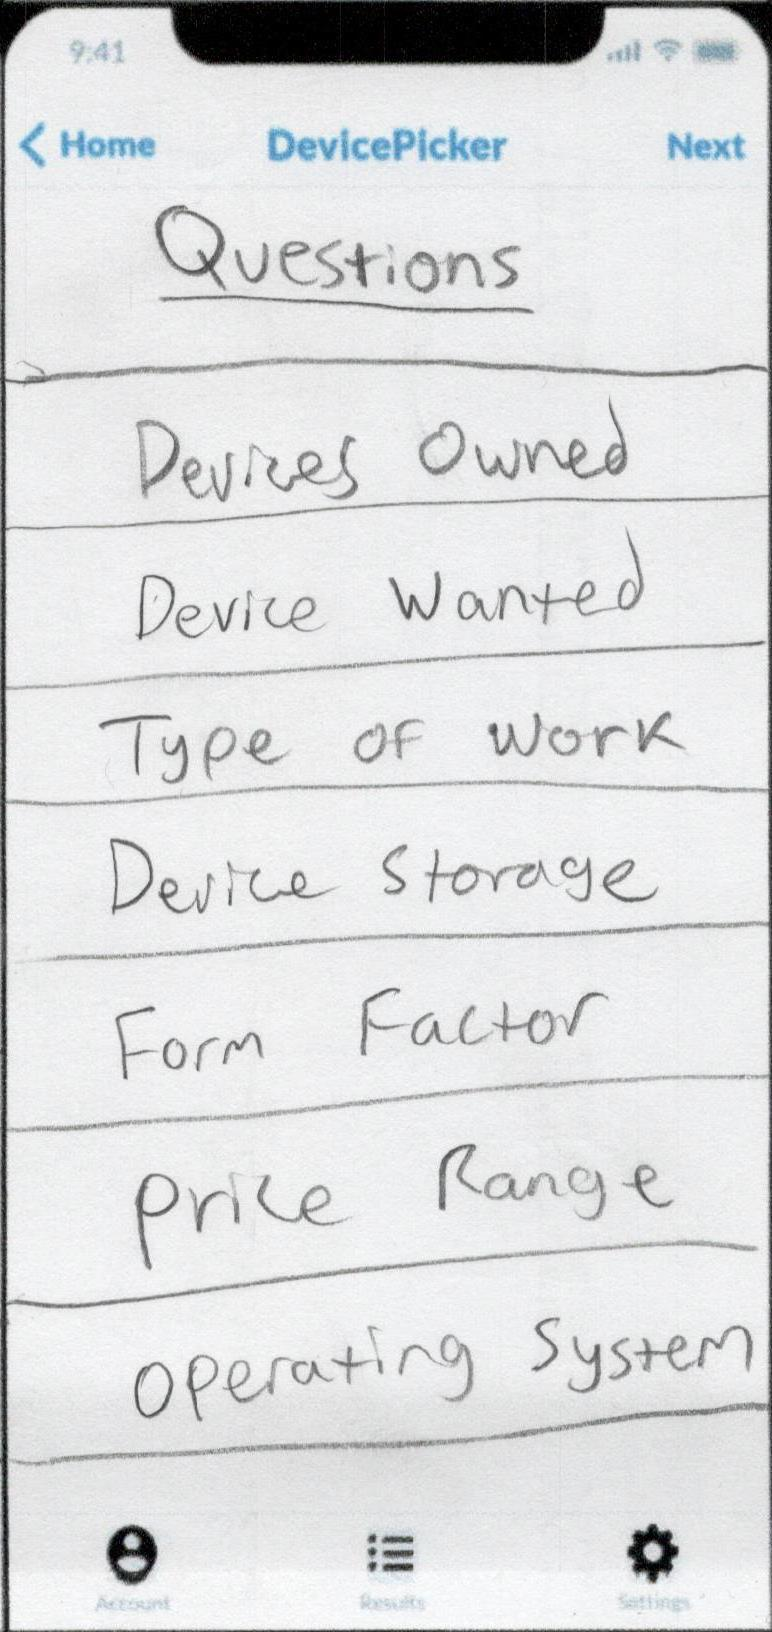 9:41
Home DevicePicker Next
Questions
Devices Owned
Device Wanted
Type of Work
Device Storage
Form Factor
Price Range
Operating System
Account Results Settings